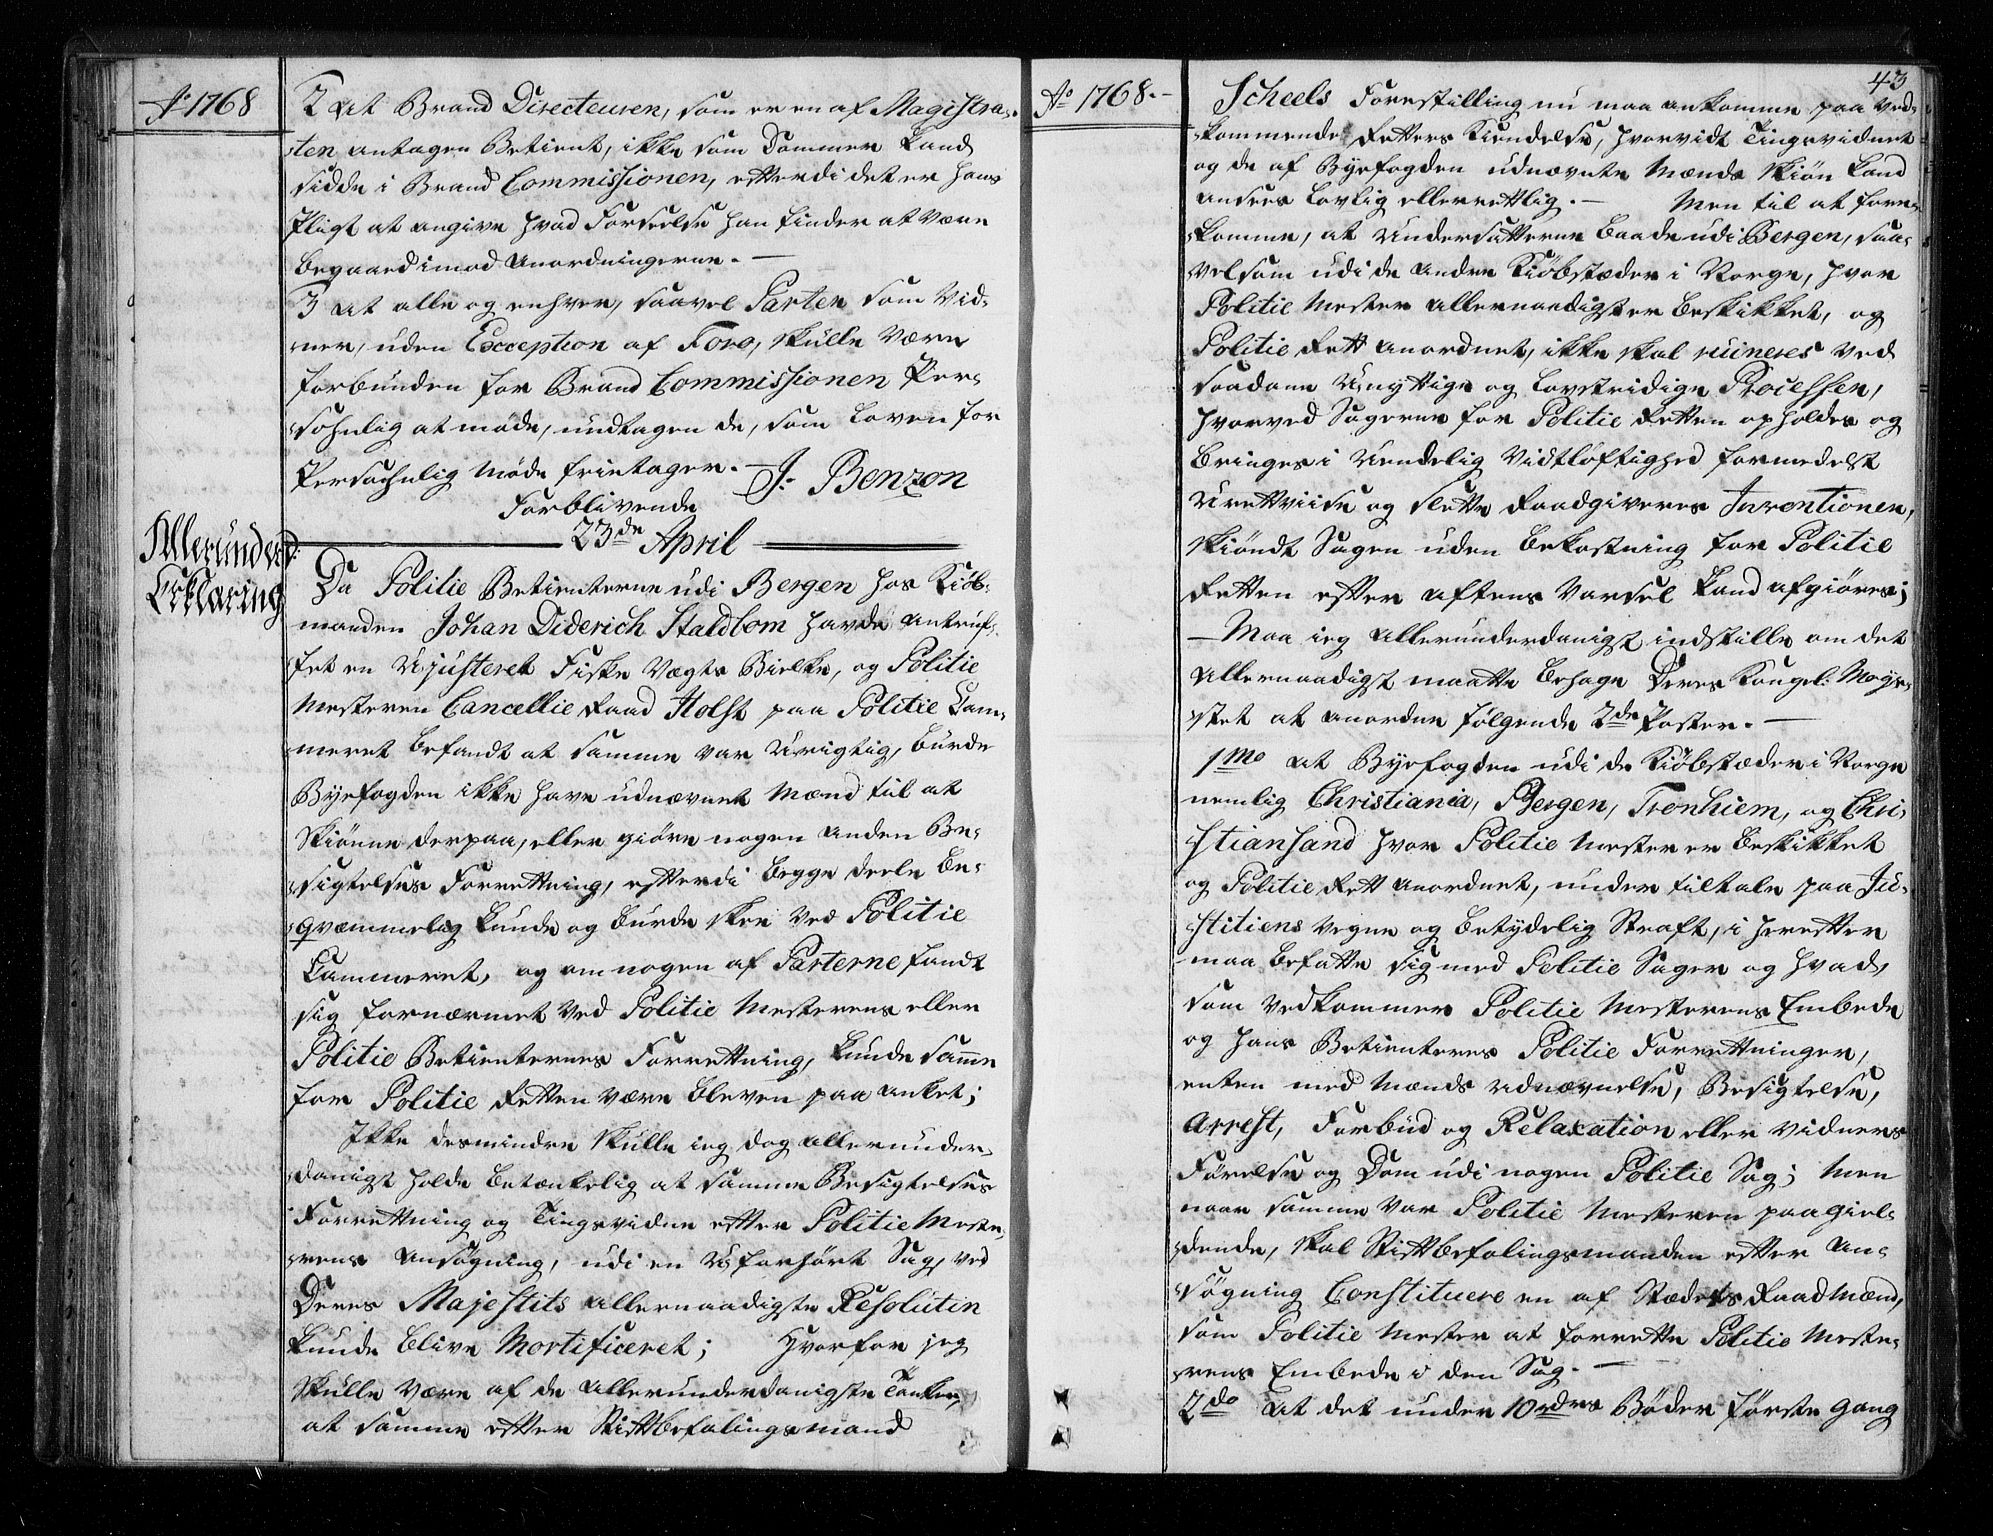 Ao 1768
2 at Brand Directeuren, som er en af Magistra-
-ten antagen Betient, ikke som Dommer kand
sidde i Brand Commissionen, efterdi det er hans
Pligt at angive hvad Forseelse han finder at være
begaaed imod Anordningerne. —
3 at alle og enhver, saavel Parten som Vid-
-ner, uden Exception af Foro, skulle være
forbunden for Brand Commissionen Per-
-sohnlig at møde, undtagen de, som Loven for
Persohnlig Møde frietager. —
Forblivende J. Benzon
23de April
Allerunderd:
Erklaring
Da Politie Betienterne udi Bergen hos Kiøb-
manden Johan Diderich Staldbom havde antruf-
-fet en Ujusteret Fiske Vægts Bielke, og Politie
Mesteren Cancellie Raad Holst paa Politie Cam-
meret befandt at samme var Urigtig, burde
Byefogden ikke have udnævnet Mænd til at
skiønne derpaa, eller giøre nogen anden Be-
-sigtelses Forrettning, efterdi begge deele be-
-qvæmmelig kunde og burde skee ved Politie
Cammeret, og om nogen af Parterne fandt
sig fornærmet ved Politie Mesterens eller
Politie Betienternes Forrettning, kunde samme
for Politie Retten være bleven paa anket;
Ikke desmindre skulle ieg dog allerunder-
-danigst holde betænkelig at samme Besigtelses
Forrettning og Tingsvidne efter Politie Meste-
-rens Ansøgning, udi en Uforhørt Sag, ved
Deres Majestits allernaadigste Resolutin
kunde blive Mortificeret; Hvorfor jeg
skulle være af de allerunderdanigste Tanker,
at samme efter Stiftbefalingsmand
Ao 1768.-
43
Scheels Forestilling nu maa ankomme paa ved-
-kommende Retters Kiendelse, hvorvidt Tingsvidnet
og de af Byefogden udnævnte Mænds skiøn kand
ansees lovlig eller rettlig. — Men til at fore-
-komme, at Undersaatterne baade udi Bergen, saa-
velsom udi de andre Kiøbstæder i Norge, hvor
Politie Mester allernaadigst er beskikket, og
Politie Rett anordnet, ikke skal ruineres ved
saadane Unyttige og lovstridige Processen,
hvorved Sagerne for Politie Retten opholdes og
bringes i Uendelig Vidtløftighed formedelst
Urettviise og slette Raadgiveres Inventionen,
skiøndt Sagen uden bekostning for Politie
Retten efter aftens Varsel kand afgiøres;
— Maa ieg allerunderdanigst indstille om det
allernaadigst maatte behage Deres Kongel: Maje-
-stet at anordne følgende 2de Poster. —
1mo at Byefogden udi de Kiøbstæder i Norge
nemlig Christiania, Bergen, Tronhiem, og Chri-
-stiansand hvor Politie Mester er beskikket
og Politie Rett anordnet, under tiltale paa Ju-
-stitiens vegne og betydelig Straff, i herefter
maa befatte sig med Politie Sager og hvad,
som vedkommer Politie Mesterens Embede
og hans Betienteres Politie Forrettninger,
enten med Mænds udnævnelse, Besigtelse,
Arrest, Forbud og Relaxation eller vidners
Førelse og Dom udi nogen Politie Sag; Men
naar samme var Politie Mesteren paagiel-
-dende, skal Stiftbefalingsmanden efter an-
-søgning Constituere en af Stædets Raadmænd,
som Politie Mester at forrette Politie Meste-
-rens Embede i den Sag. —
2do at det under 10rdrs Bøder første gang